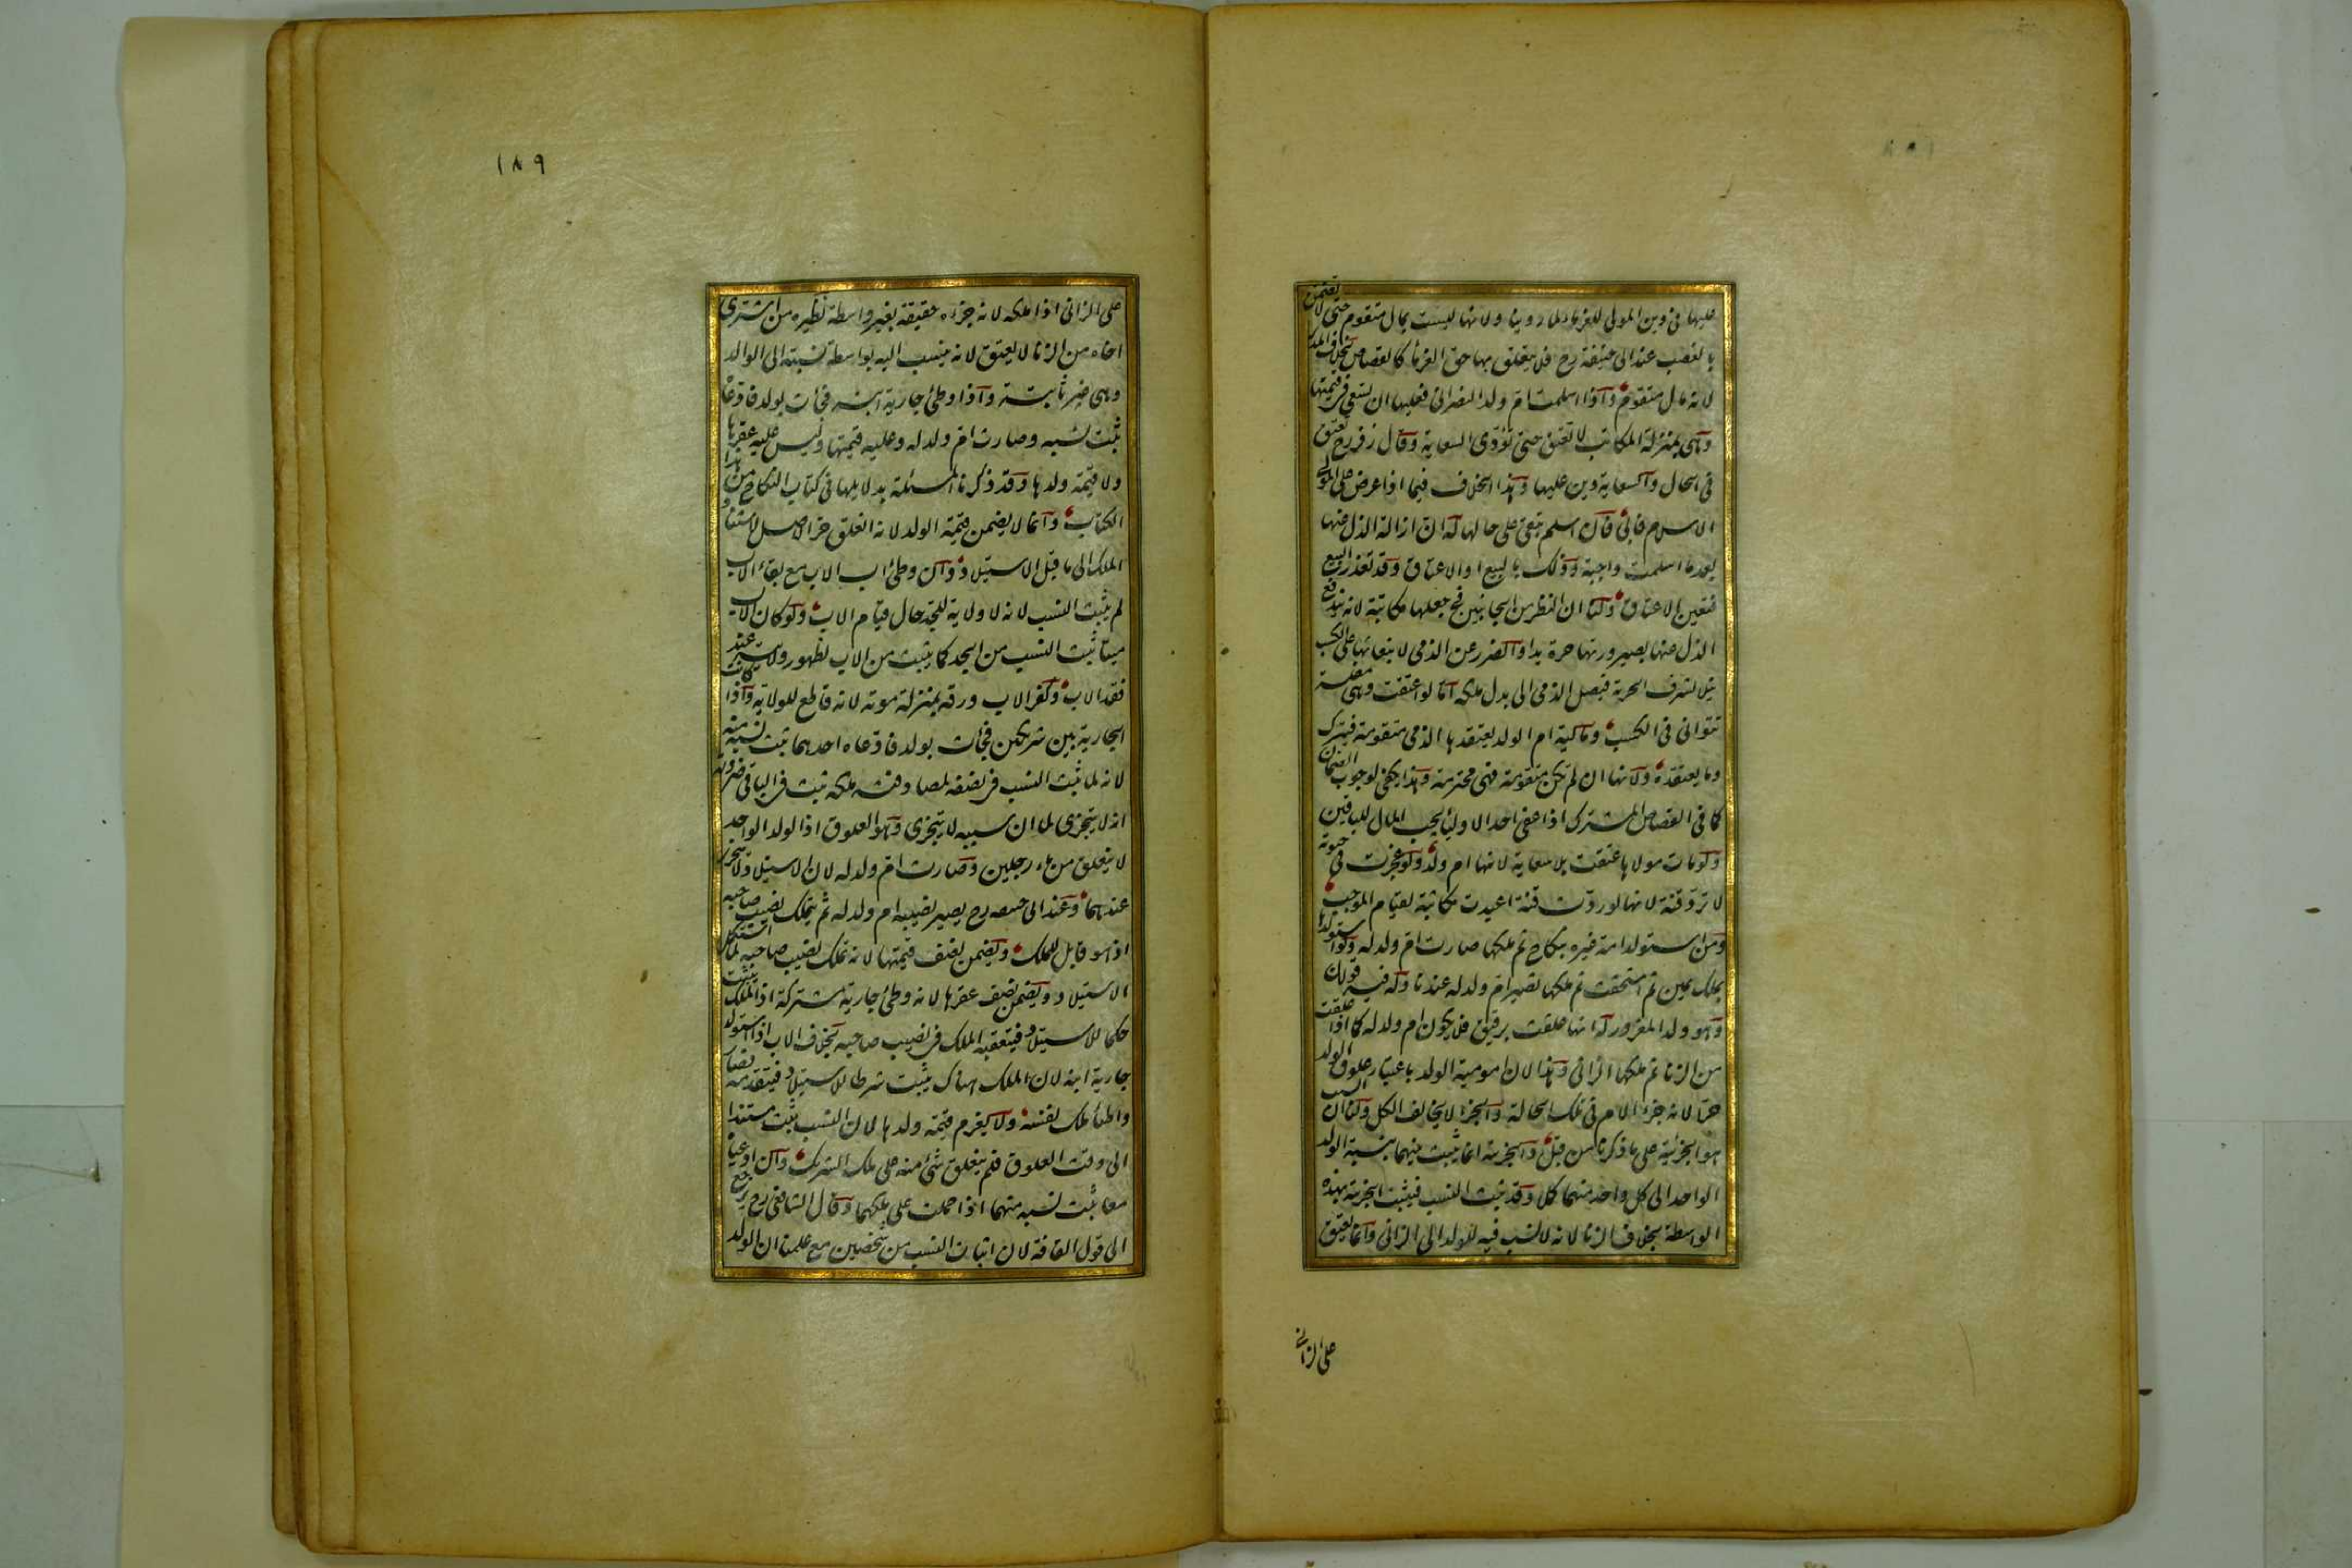 عليها فى دين المولى للغرماء لما روينا ولانها ليست بمال متقوم حتى لا تضمن
بالغصب عند ابى حنيفة رح فلا يتعلق بها حق الغرماء كالقصاص بخلاف المدبر
لانه مال متقوم واذا اسلمت ام ولد النصرانى فعليها ان تسعى فى قيمتها
وهى بمنزلة المكاتب لا تعتق حتى تؤدى السعاية وقال زفر رح تعتق
فى الحال والسعاية دين عليها وهذا الخلاف فيما اذا عرض على المولى
الاسلام فابى فان اسلم تبقى على حالها له ان ازالة الذل عنها
بعد ما اسلمت واجبة وذلك بالبيع او الاعتاق وقد تعذر البيع
فتعين الاعتاق ولنا ان النظر من الجانبين فى جعلها مكاتبة لانه يندفع
الذل عنها بصيرورتها حرة يدا والضرر عن الذمى لانبعاثها على الكسب
نيلا لشرف الحرية فيصل الذمى الى بدل ملكه اما لو اعتقت وهى مفلسة
تتوانى فى الكسب ومالية ام الولد يعتقدها الذمى متقومة فيترك
وما يعتقده ولانها ان لم تكن متقومة فهى محترمة وهذا يكفى لوجوب الضمان
كما فى القصاص المشترك اذا عفى احد الاولياء يجب المال للباقين
ولو مات مولاها عتقت بلا سعاية لانها ام ولد ولو عجزت فى حيوته
لا ترد قنة لانها لو ردت قنة اعيدت مكاتبة لقيام الموجب
ومن استولد امة غيره بنكاح ثم ملكها صارت ام ولد له ولو استولدها
بملك يمين ثم استحقت ثم ملكها تصير ام ولد له عندنا وله فيه قولان
وهو ولد المغرور له انها علقت برقيق فلا يكون ام ولد له كما اذا علقت
من الزنا ثم ملكها الزانى وهذا لان امومية الولد باعتبار علوق الولد
حرا لانه جزء الام فى تلك الحالة والجزء لا يخالف الكل ولنا ان السبب
هو الجزئية على ما ذكرنا من قبل والجزئية انما يثبت بينهما بنسبة الولد
الواحد الى كل واحد منهما كملا وقد ثبت النسب فيثبت الجزئية بهذه
الواسطة بخلاف الزنا لانه لا نسب فيه للولد الى الزانى وانما يعتق
على الزانى
١٨٩
على الزانى اذا ملكه لانه جزءه حقيقة بغير واسطة نظيره من اشترى
اخاه من الزنا لا يعتق لانه ينسب اليه بواسطة نسبته الى الوالد
وهى غير ثابتة واذا وطئ جارية ابنه فجأت بولد فادعاه
ثبت نسبه وصارت ام ولد له وعليه قيمتها وليس عليه عقرها
ولا قيمة ولدها وقد ذكرنا المسئلة بدلايلها فى كتاب النكاح من هذا
الكتاب وانما لا يضمن قيمة الولد لانه انعلق حر الاصل لاستناد
الملك الى ما قبل الاستيلاد وان وطئ اب الاب مع بقاء الاب
لم يثبت النسب لانه لا ولاية للجد حال قيام الاب ولو كان الاب
ميتا ثبت النسب من الجد كما يثبت من الاب لظهور ولايته عند
فقد الاب وكفر الاب ورقه بمنزلة موته لانه قاطع للولاية واذا كانت
الجارية بين شريكين فجأت بولد فادعاه احدهما ثبت نسبه منه
لانه لما ثبت النسب فى نصفه لمصادفته ملكه ثبت فى الباقى ضرورة
انه لا يتجزى لما ان سببه لا يتجزى وهو العلوق اذ الولد الواحد
لا ينعلق من ماء رجلين وصارت ام ولد له لان الاستيلاد لا يتجزى
عندهما وعند ابى حنيفة رح يصير نصيبه ام ولد له ثم يتملك نصيب صاحبه
اذ هو قابل للملك ويضمن نصف قيمتها لانه تملك نصيب صاحبه لما استكمل
الاستيلاد ويضمن نصف عقرها لانه وطئ جارية مشتركة اذ الملك يثبت
حكما للاستيلاد فيتعقبه الملك فى نصيب صاحبه بخلاف الاب اذا استولد
جارية ابنه لان الملك هناك يثبت شرطا للاستيلاد فيتقدمه فصار
واطئا ملك نفسه ولا يغرم قيمة ولدها لان النسب يثبت مستندا
الى وقت العلوق فلم ينعلق شئ منه على ملك الشريك وان ادعياه
معا ثبت نسبه منهما اذا حملت على ملكهما وقال الشافعى رح يرجع
الى قول القافة لان اثبات النسب من شخصين مع علمنا ان الولد